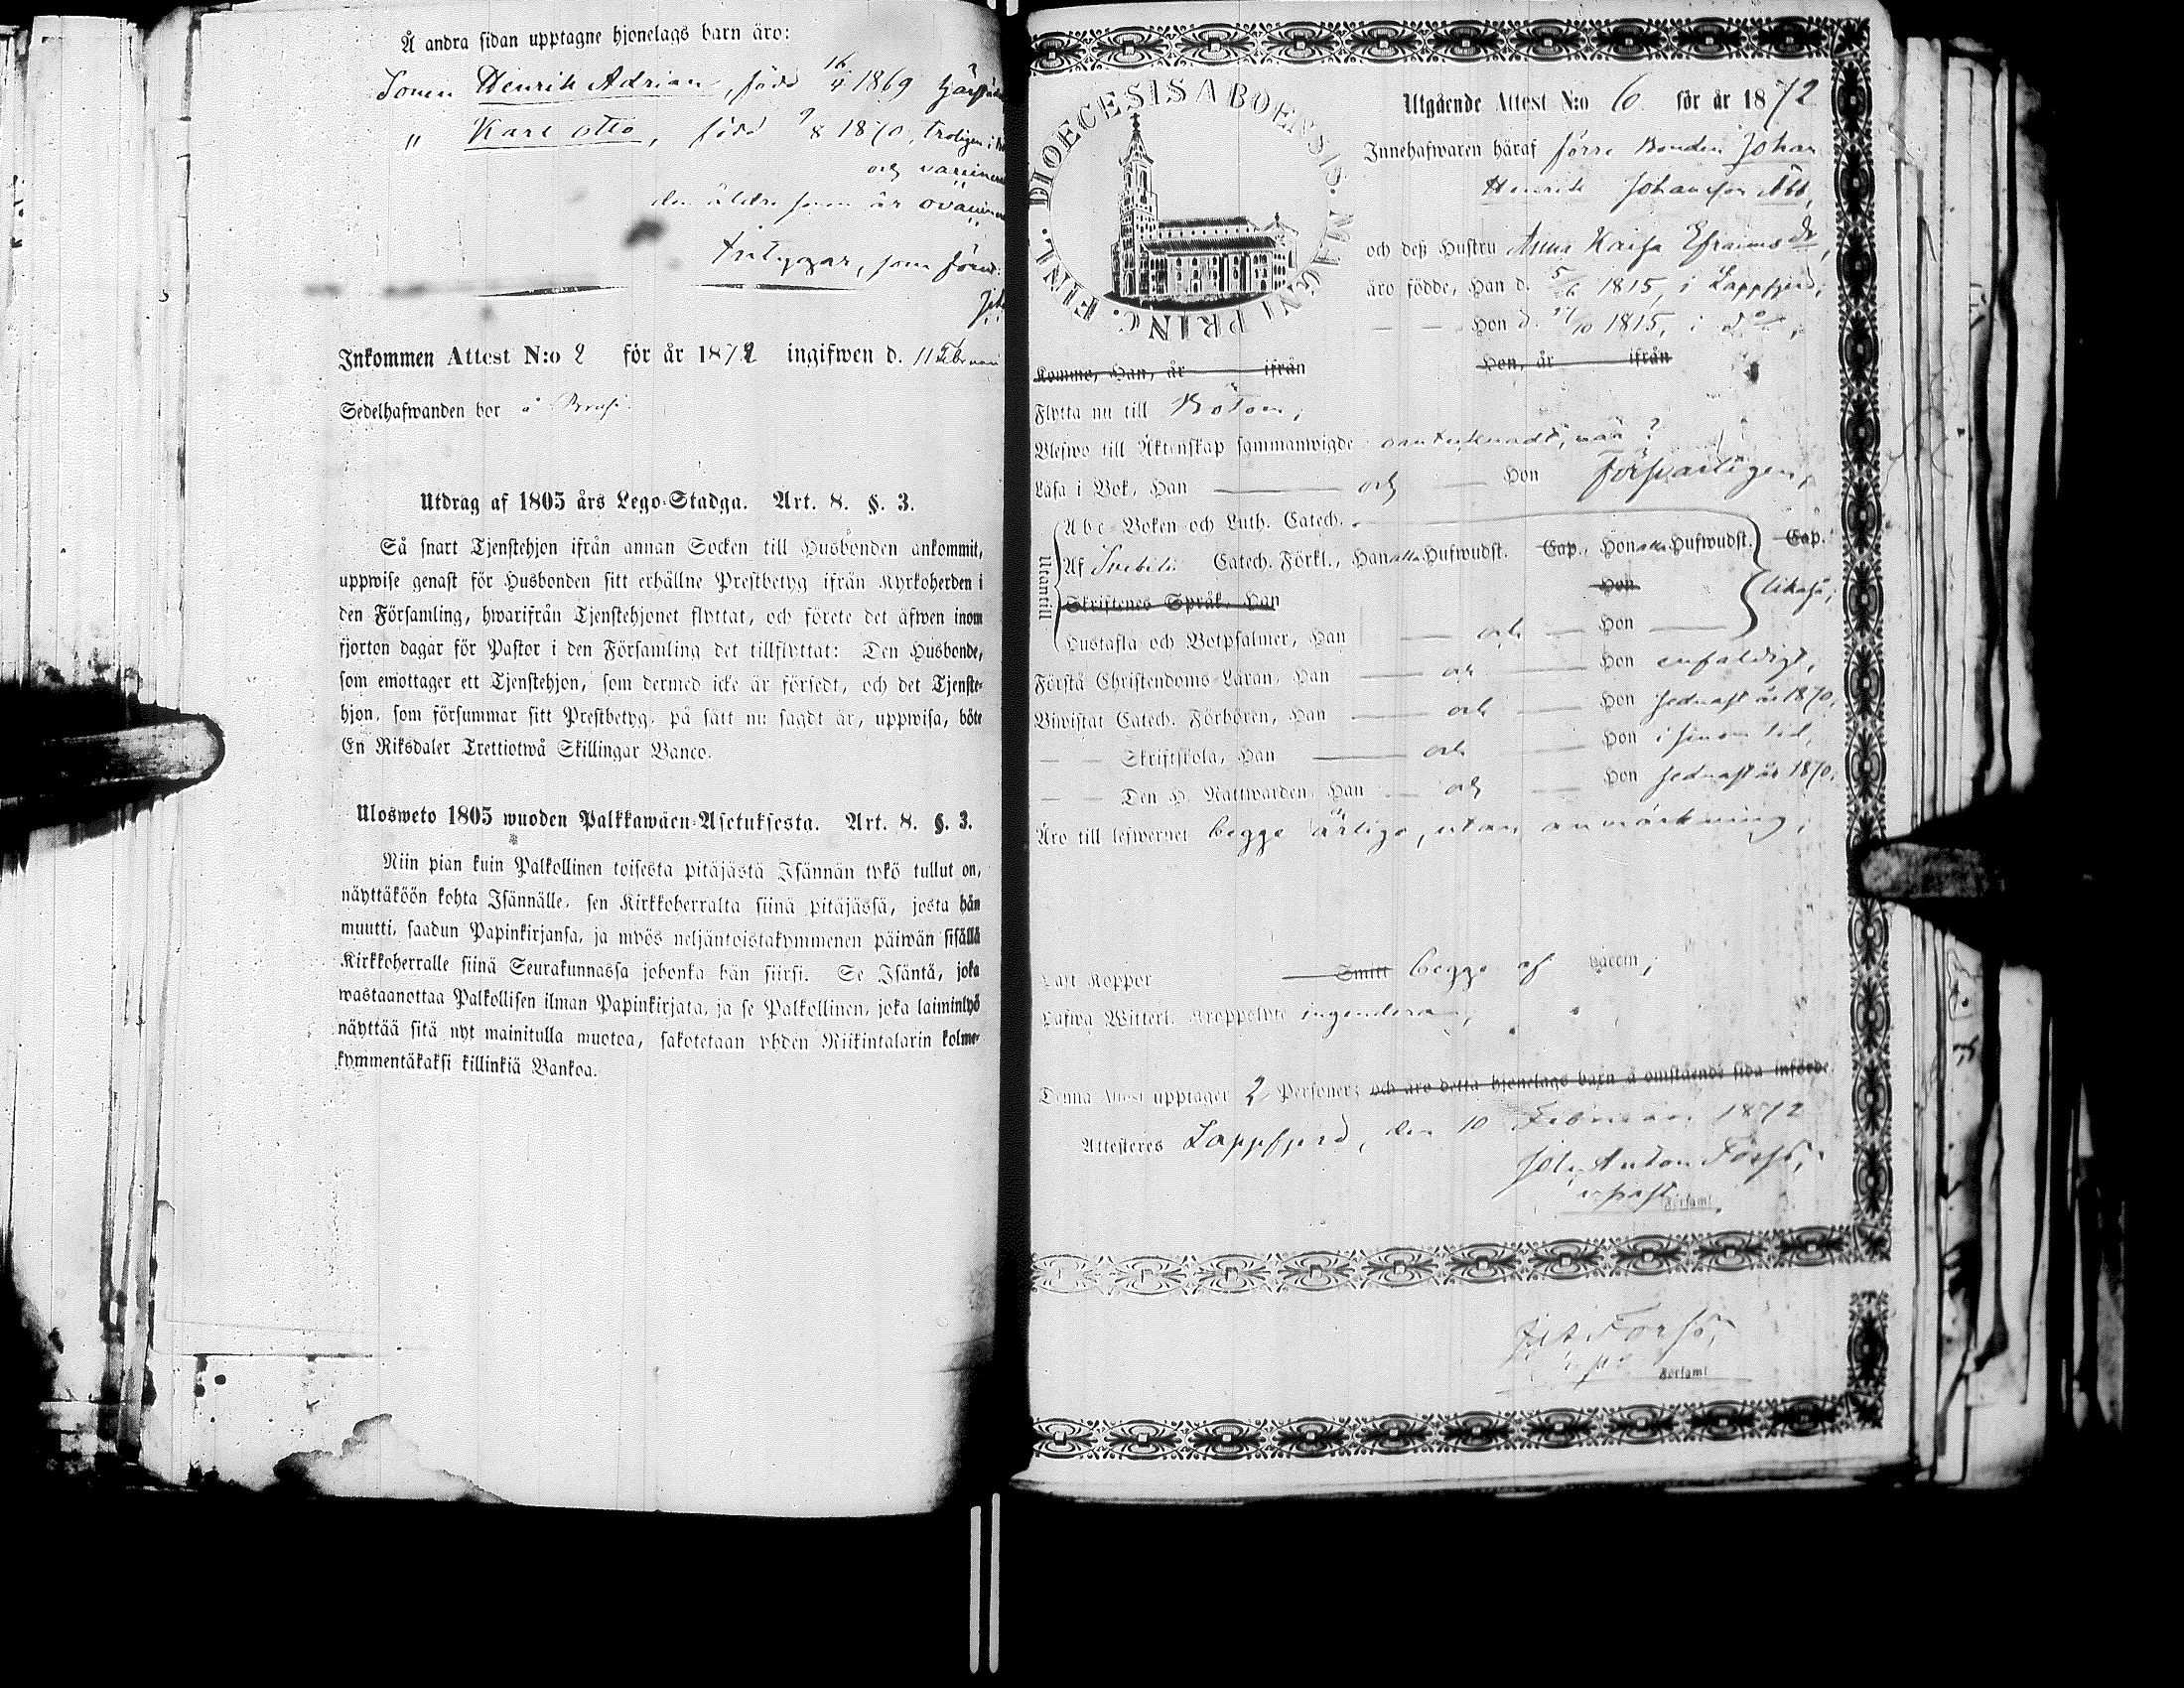 Å andra sidan upptagne hjonelags barn äro:
Sonen Henrik Adrian, född 16/4 1869
" Karl Otto, född 9/8 1870, troligen i
och vaccinerad
den äldre sonen är ovaccinerad
som förut.
Inkommen Attest N:o 2 för år 1872 ingifwen d. 11 Februari
Sedelhafwanden bor å
Utdrag af 1805 års Lego-Stadga. Art. 8. §. 3.
Så snart Tjenstehjon ifrån annan Socken till Husbonden ankommit,
uppwise genast för Husbonden sitt erhållne Prestbetyg ifrån Kyrkoherden i
den Församling, hwarifrån Tjenstehjonet flyttat, och förete det äfwen inom
fjorton dagar för Pastor i den Församling det tillflyttat: Den Husbonde,
som emottager ett Tjenstehjon, som dermed icke är försedt, och det Tjenste-
hjon, som försummar sitt Prestbetyg, på sätt nu sagdt är, uppwisa, böte
En Riksdaler Trettiotwå Skillingar Banco.
Ulosweto 1805 wuoden Palkkawäen-Asetuksesta. Art. 8. §. 3.
Niin pian kuin Palkollinen toisesta pitäjästä Isännän tykö tullut on,
näyttäköön kohta Isännälle, sen Kirkkoherralta siinä pitäjässä, josta hän
muutti, saadun Papinkirjansa, ja myös neljäntoistakymmenen päiwän sisällä
Kirkkoherralle siinä Seurakunnassa johonka hän siirsi. Se Isäntä, joka
wastaanottaa Palkollisen ilman Papinkirjata, ja se Palkollinen, joka laiminlyö
näyttää sitä nyt mainitulla muotoa, sakotetaan yhden Riikintalarin kolme-
kymmentäkaksi killinkiä Bankoa.
DIOECESIS ABOENSIS. MAGNI PRINC. FINL.
Utgående Attest N:o 6 för år 1872
Innehafwaren häraf förre Bonden Johan
Henrik Johansson Åbb,
och deß Hustru Anna Kaisa Efraimsdr,
äro födde, Han d. 5/6 1815, i Lappfjerd,
— — Hon d. /10 1815, i do,
Komme, Han, år ifrån Hon, år ifrån
Flytta nu till Bötom,
Blefwo till Äktenskap sammanwigde oantecknadt, när?
Läsa i Bok, Han — och — Hon försvarligen,
Utantill
Abc-Boken och Luth. Catech.
Af Svebilii Catech. Förkl., Han alla Hufwudst. Cap., Hon alla Hufwudst. Cap.
Skriftenes Språk, Han Hon likaså,
Hustafla och Botpsalmer, Han — och — Hon
Förstå Christendoms-Läran, Han — och — Hon enfaldigt,
Biwistat Catech. Förhören, Han — och — Hon sednast år 1870,
— — Skriftskola, Han — och — Hon i sinom tid,
— — Den H. Nattwarden, Han — och — Hon sednast år 1870,
Äro till lefwernet begge ärlige, utan anmärkning,
Haft Koppor Smitt begge af vaccin,
Hafwa Witterl. Kroppslyte ingendera,
Denna Attest upptager 2 Personer; och äro detta hjonelags barn å omstående sida införde.
Attesteres Lappfjerd, den 10 Februari 1872
Joh. Anton Forss,
Församl.
J. A. Forss,
Församl.